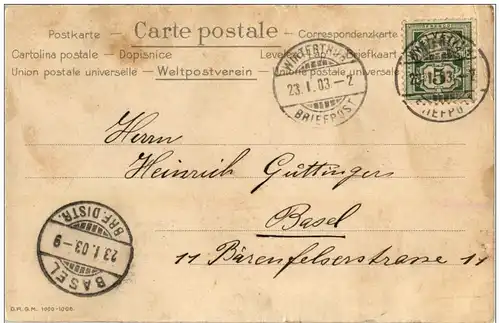 Postkarte — Carte postale — Correspondenzkarte
Cartolina postale — Dopisnice
Briefkaart
Union postale universelle — Weltpostverein — postale universale
WINTERTHUR
23.I.03.–7
BRIEFPOST
5
Herrn
Heinrich Güttingers
Basel
11 Bärenfelserstrasse 11
BASEL
23.I.03–9
BRF.DISTR.